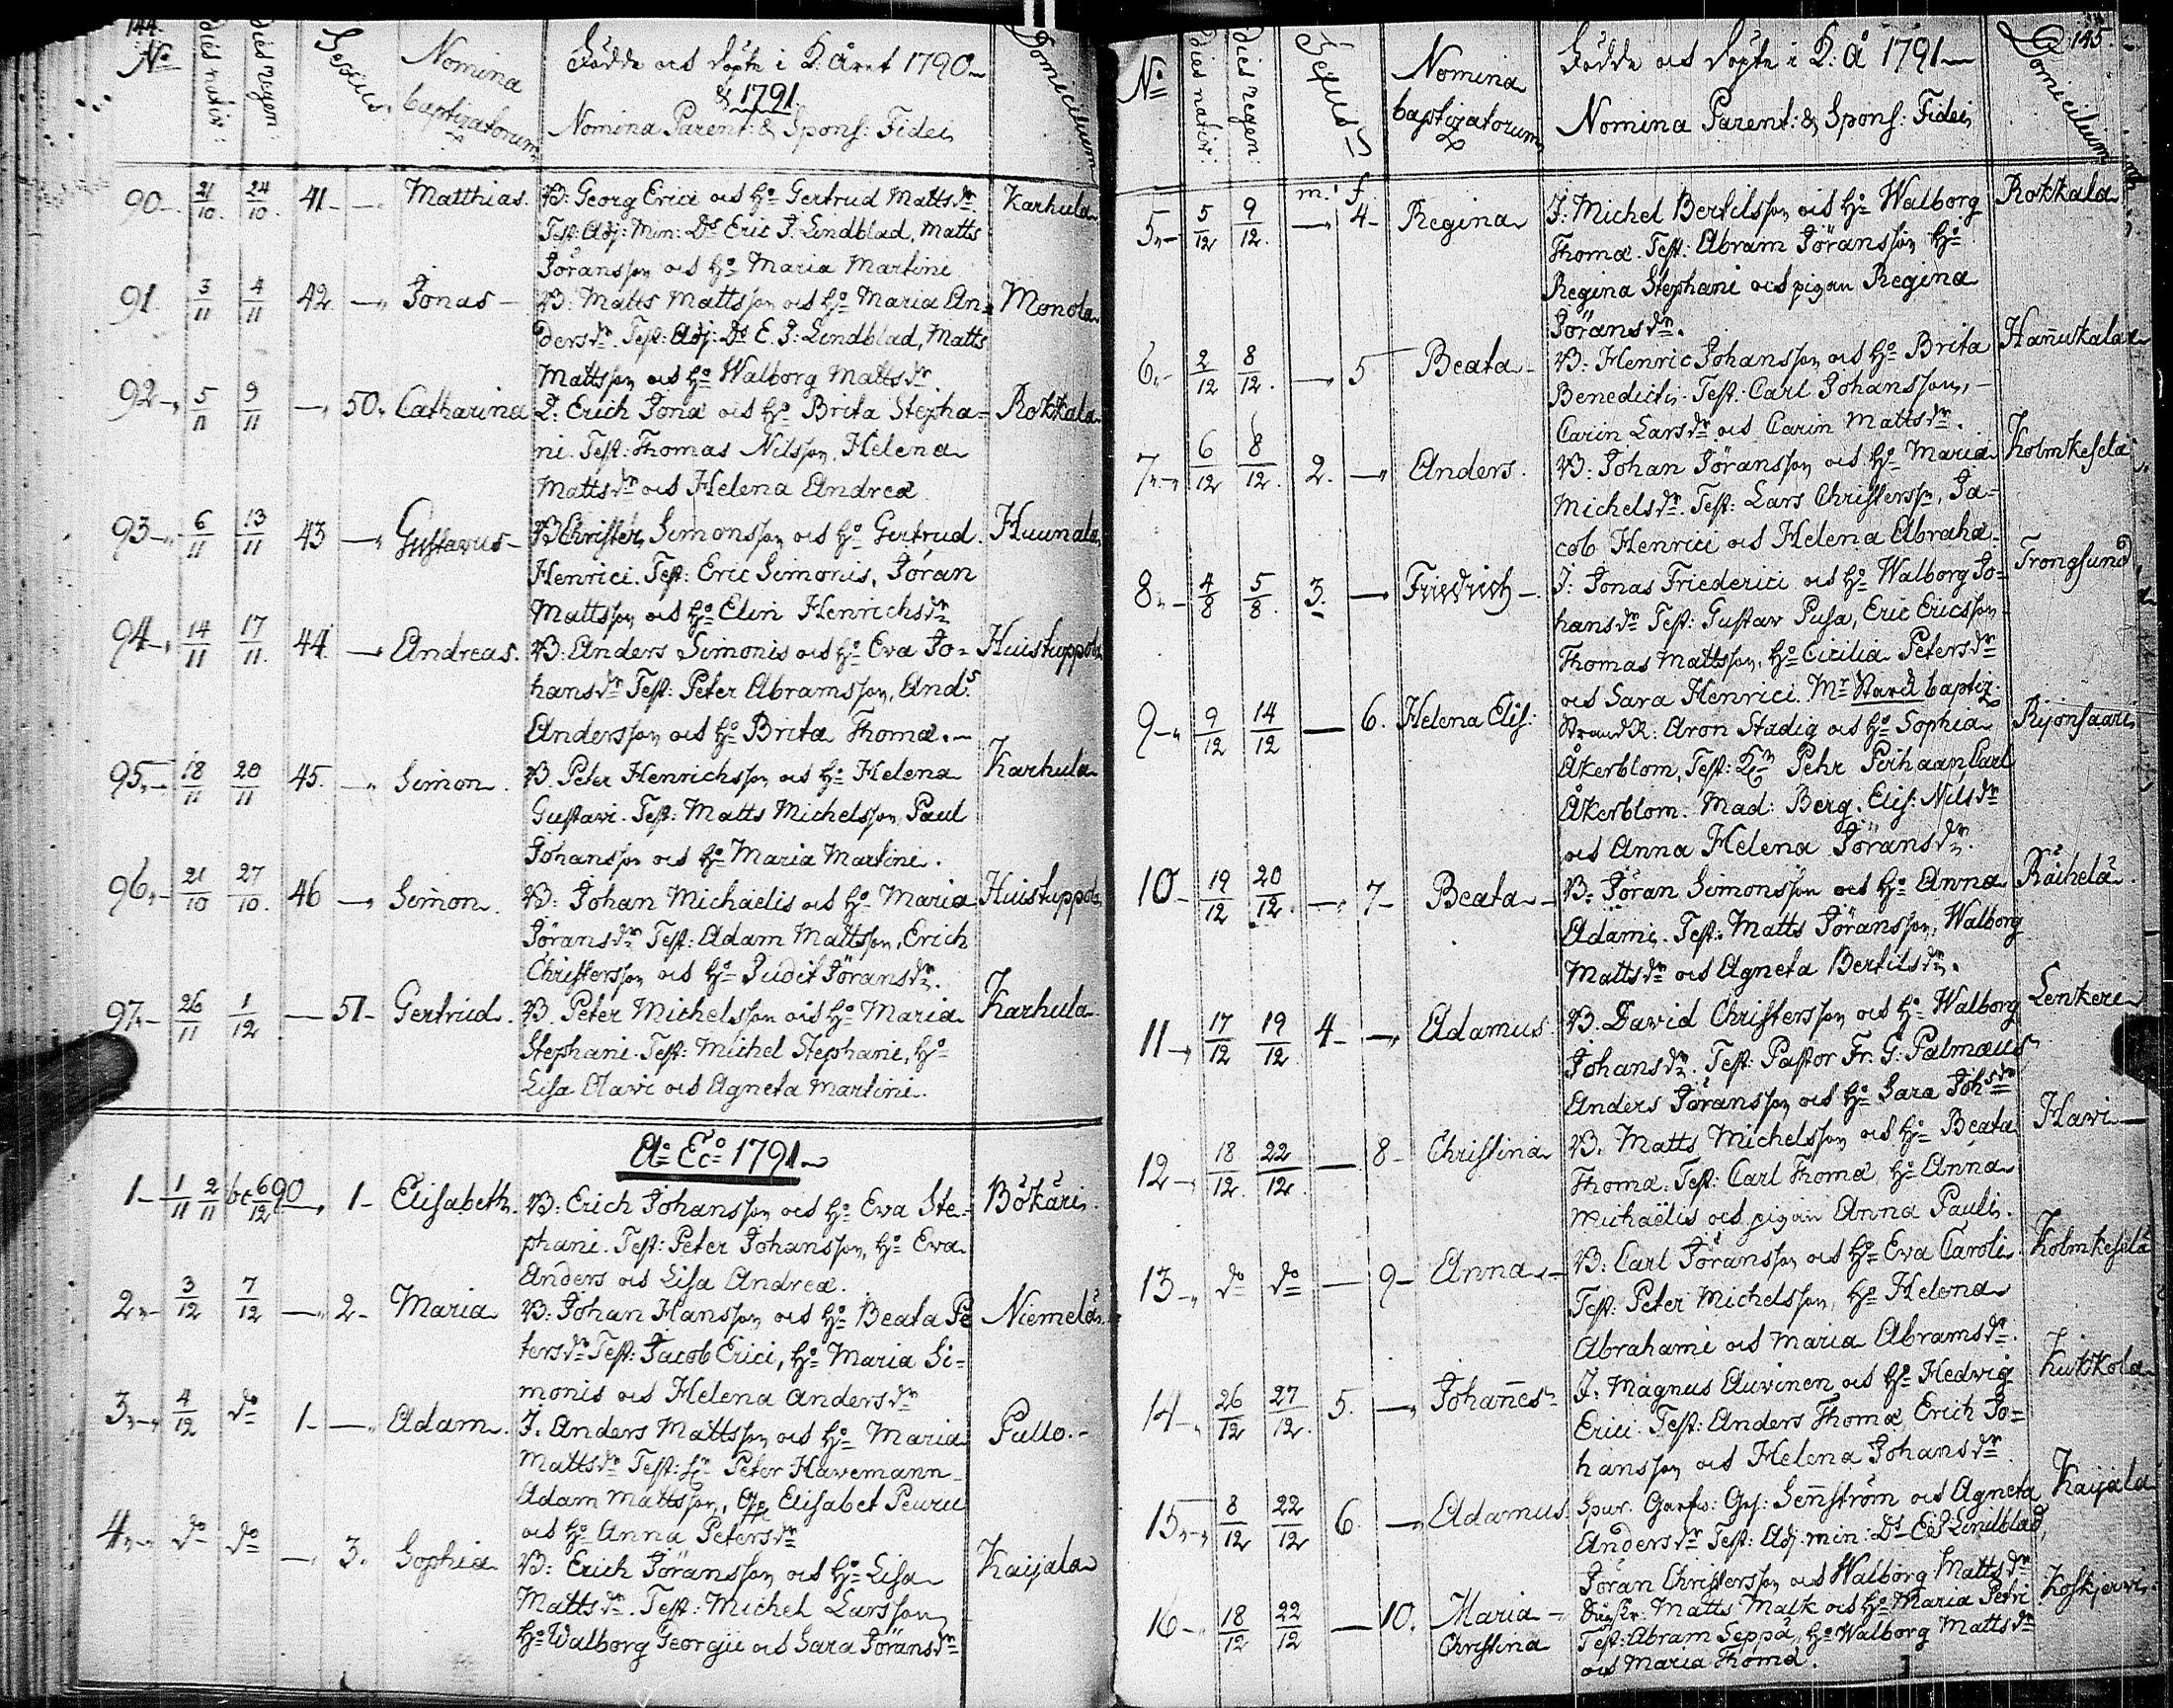 144.
No dies nativ: dies regen: Sexus. Nomina baptizatorum Födde och döpte i K. Året 1790 & 1791 Nomina Parent: & Spons: Fidei Domicilium
90 21/10. 24/10. 41 — Matthias. B: Georg Erici och Ho Gertrud Mattsdr Karhula
Test: Adj: Min: Ds Eric J. Lindblad, Matts
Jöransson och Ho Maria Martini
91. 3/11 4/11 42 — Jonas B: Matts Mattsson och Ho Maria An= Monola
dersdr. Test: Adj: Ds E. J: Lindblad, Matts
Mattsson och Ho Walborg Mattsdr.
92 5/11 9/11 — 50. Catharina J. Erich Jonæ och Ho Brita Stepha= Rokkala
ni. Test: Thomas Nilsson, Helena
Mattsdr och Helena Andreæ
93 6/11 13/11 43 — Gustavus B Christer Simonsson och Ho Gertrud Huunala
Henrici. Test: Eric Simonis, Jöran
Mattsson och Ho Elin Henrichsdr
94 14/11 17/11. 44 — Andreas. B. Anders Simonis och Ho Eva Jo= Huistuppola
hansdr Test: Peter Abramsson, Ands
Andersson och Ho Brita Thomæ.
95 18/11 20/11 45. — Simon. B. Peter Henrichsson och Ho Helena Karhula
Gustavi. Test: Matts Michelsson, Paul
Johansson och Ho Maria Martini.
96 21/10 27/10. 46 — Simon. B: Johan Michaelis och Ho Maria Huistuppola
Jöransdr Test: Adam Mattsson, Erich
Christersson och Ho Judit Jöransdr.
97 26/11 1/12 — 51 Gertrud. B. Peter Michelsson och Ho Maria Karhula
Stephani. Test: Michel Stephani, Ho
Lisa Olavi och Agneta Martini.
Ao Eo 1791
1 1/11 2/11 6/12 90 — 1 Elisabeth. B: Erich Johansson och Ho Eva Ste= Bökäri.
phani. Test: Peter Johansson, Ho Eva
Anders och Lisa Andreæ.
2 3/12 7/12 — 2 Maria B: Johan Hansson och Ho Beata Pe Niemelä
tersdr Test: Jacob Erici, Ho Maria Si=
monis och Helena Andersdr
3 4/12 do 1 — Adam. J. Anders Mattsson och Ho Maria Pullo.
Mattsdr Test: Peter Havemann
Adam Mattsson, Elisabet Peuru
och Ho Anna Petersdr
4 do do — 3. Sophia B: Erich Jöransson och Ho Lisa Kaijala
Mattsdr. Test: Michel Larsson
Ho Walborg Georgii och Sara Jöransdr
145.
No dies nativ: dies regen: Sexus Nomina baptizatorum Födde och döpte i K: Å 1791 Nomina Parent: & Spons: Fidei Domicilium
m. f.
5 5/12 9/12. — 4 Regina J: Michel Bertilsson och Ho Walborg Rokkala
Thomæ. Test: Abram Jöransson Ho
Regina Stephani och pigan Regina
Jöransdr.
6 2/12 8/12. — 5 Beata B: Henric Johansson och Ho Brita Hañuskala
Benedicti. Test: Carl Johansson,
Carin Larsdr och Carin Mattsdr.
7 6/12 8/12. 2. — Anders. B: Johan Jöransson och Ho Maria Kolmkeselä
Michelsdr. Test: Lars Christersson, Ja=
cob Henrici och Helena Abrahæ
8 4/8 5/8. 3. — Friedrich J: Jonas Friederici och Ho Walborg Jo= Trongsund
hansdr Test: Gustav Pusa, Eric Ericsson
Thomas Mattsson, Ho Cicilia Petersdr
och Sara Henrici. Mr Starck baptiz.
9 9/12 14/12 — 6. Helena Elis: StrandR: Aron Stadig och Ho Sophia Rijonsaari
Åkerblom, Test: Pehr Perhaan, Carl
Åkerblom. Mad: Berg. Elis: Nilsdr
och Anna Helena Jöransdr.
10 19/12 20/12. — 7 Beata B: Jöran Simonsson och Ho Anna Räihelä
Adami. Test: Matts Jöransson, Walborg
Mattsdr och Agneta Bertilsdr.
11 17/12 19/12. 4 — Adamus. B. David Christersson och Ho Walborg Lenkeri
Johansdr. Test: Pastor Fr. G: Palmæus
Anders Jöransson och Ho Sara Johsdr
12 18/12. 22/12. — 8 Christina B. Matts Michelsson och Ho Beata Hawi
Thomæ. Test: Carl Thomæ, Ho Anna
Michaëlis och pigan Anna Pauli.
13 do do — 9 Anna B: Carl Jöransson och Ho Eva Caroli Kolmkeselä
Test: Peter Michelsson, Ho Helena
Abrahami och Maria Abramsdr.
14 26/12 27/12. 5. — Johañes J: Magnus Auvinen och Ho Hedvig Kukkola
Erici. Test: Anders Thomæ Erich Jo=
hansson och Helena Johansdr.
15 8/12 22/12 6. — Adamus Spur. Señström och Agneta Kaijala
Andersdr Test: Adj. min: Ds E: J: Lindblad,
Jöran Christersson och Walborg Mattsdr
16 18/12 22/12 — 10. Maria Christina Matts Malk och Ho Maria Petri Koskjervi.
Test: Abram Seppä, Ho Walborg Mattsdr
och Maria Thomæ.